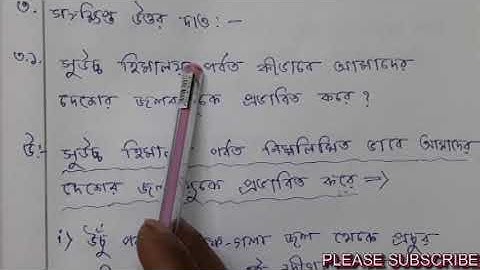 ৩. সংক্ষিপ্ত উত্তর দাও :-
৩.১. সুউচ্চ হিমালয় পর্বত কীভাবে আমাদের
দেশের প্রভাবিত করে ?
উ:- সুউচ্চ হিমালয় পর্বত নিম্নলিখিত ভাবে আমাদের
দেশের প্রভাবিত করে ⇒
i) উঁচু জল থেকে প্রচুর
PLEASE SUBSCRIBE